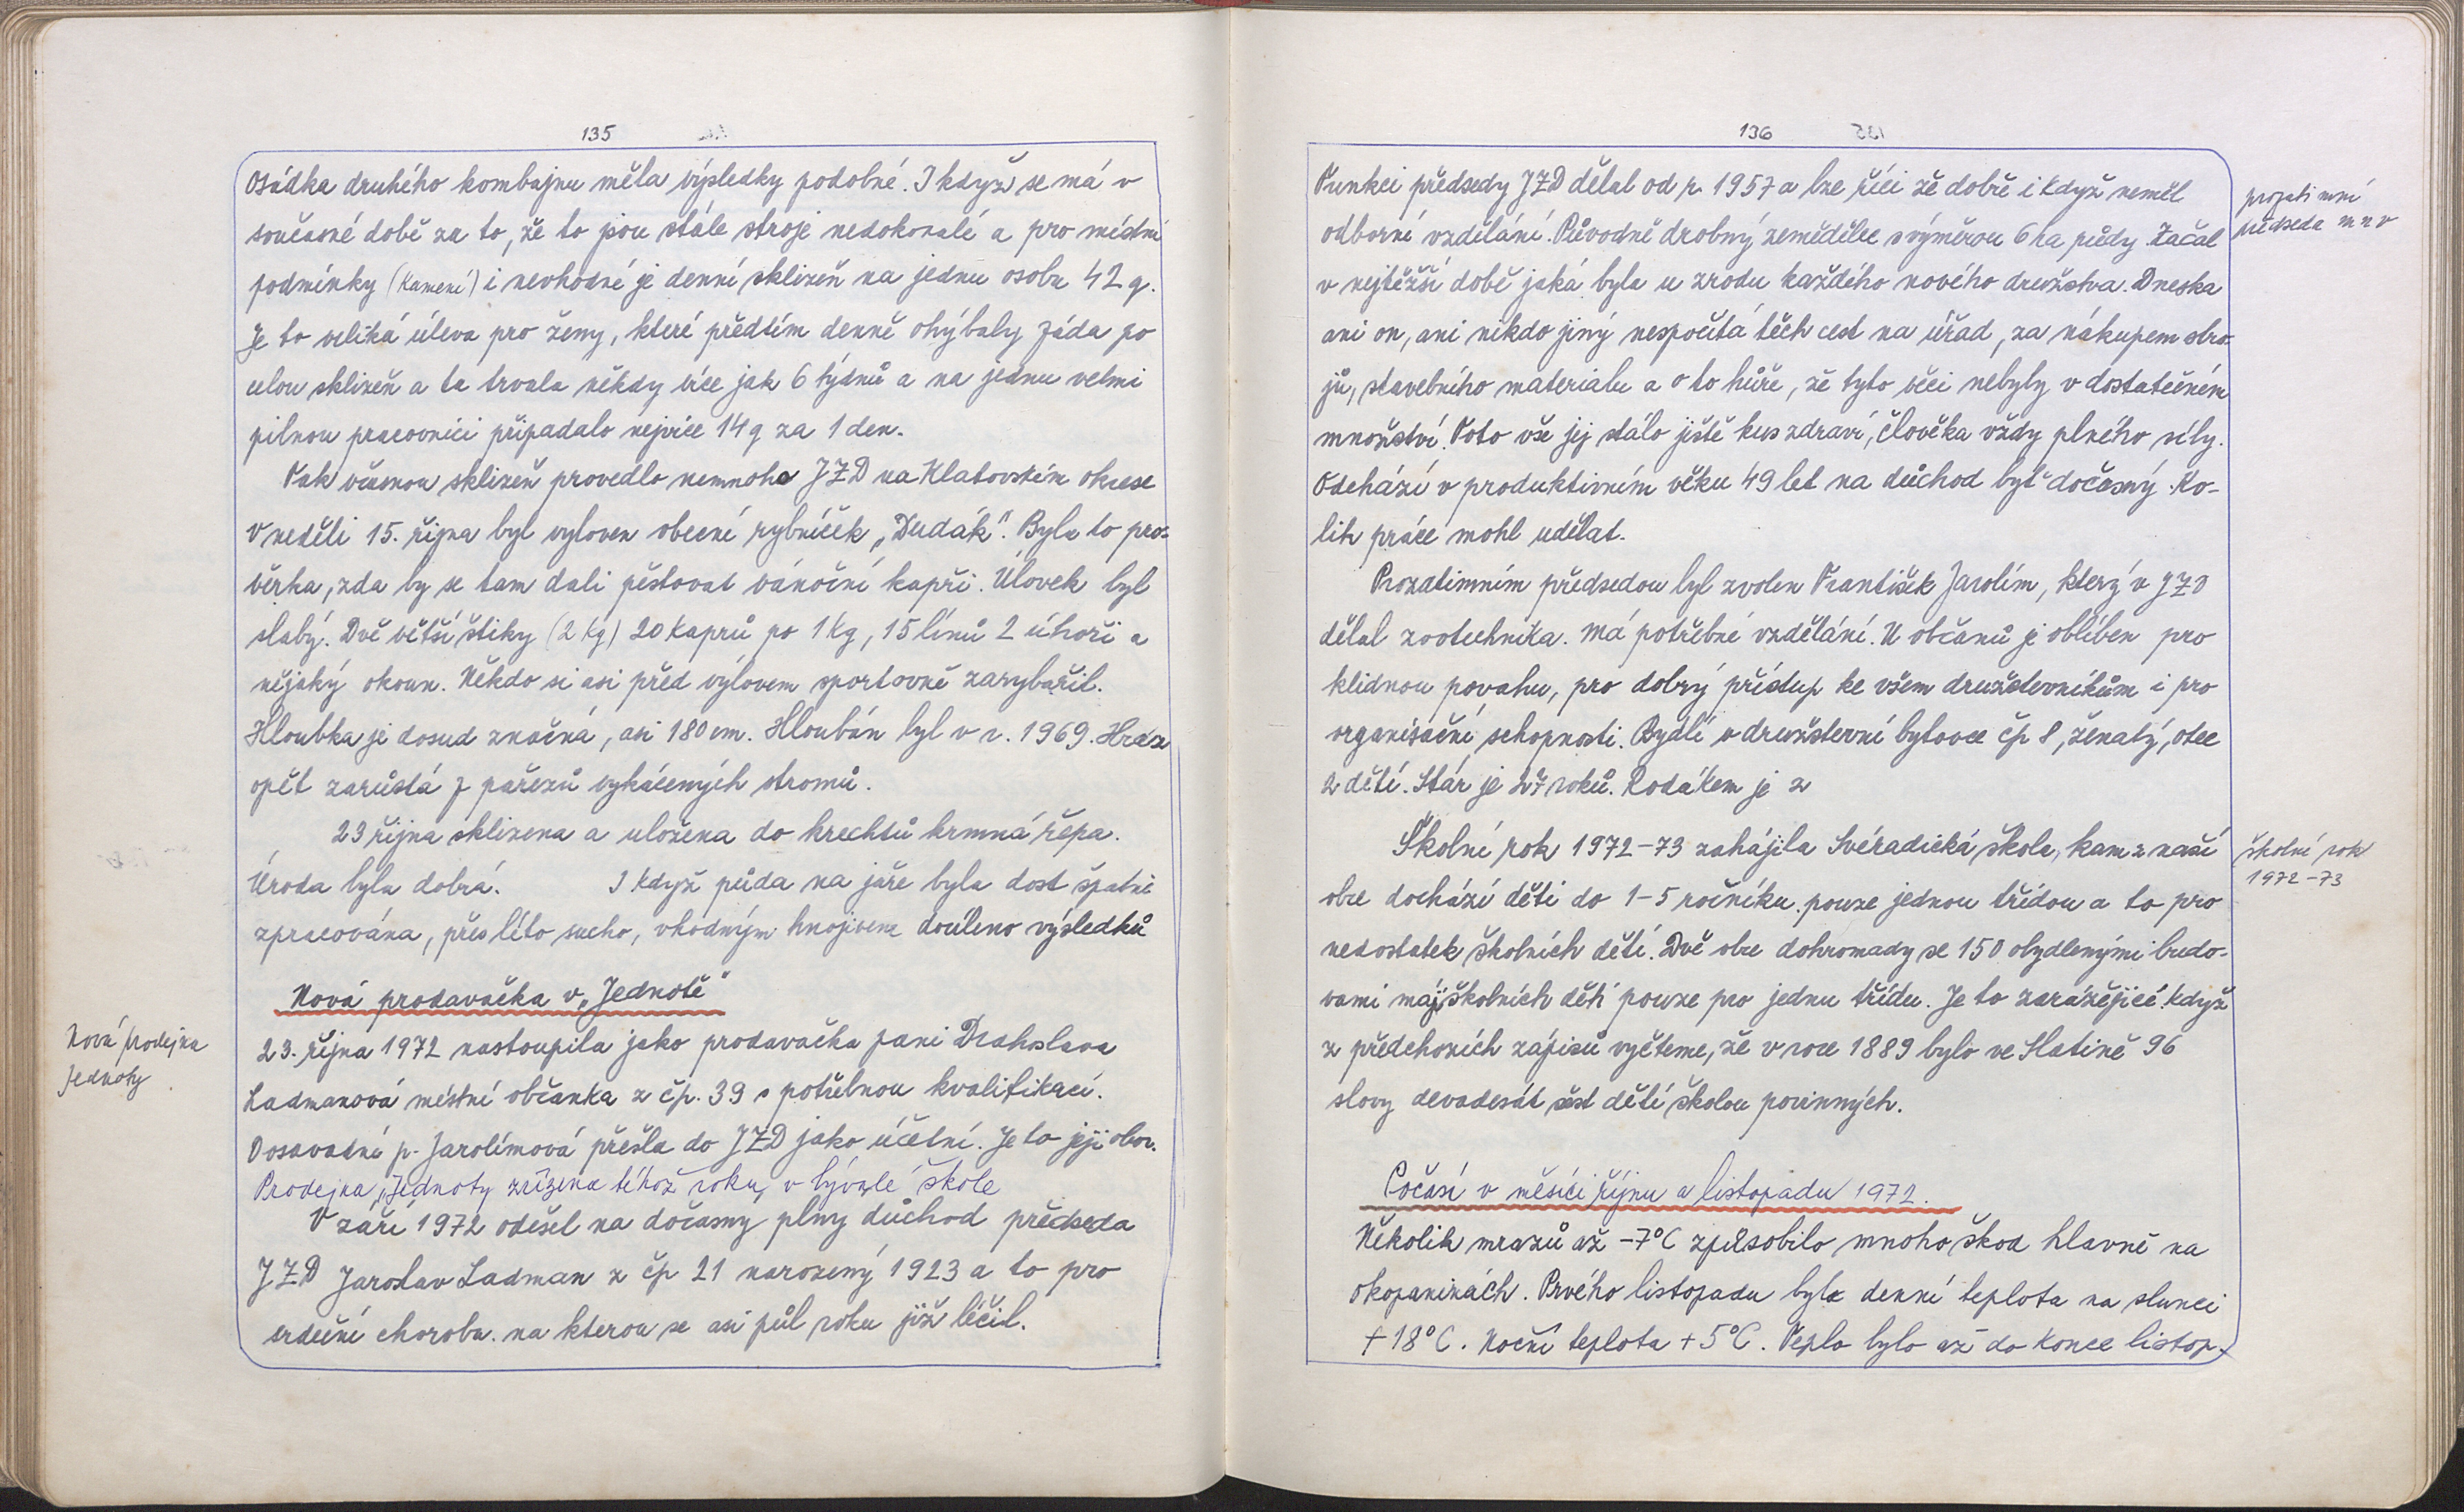 135
Osádka druhého kombajnu měla výsledky podobné. I když se má v
současné době za to, že to jsou stále stroje nedokonalé a pro místní
podmínky (kamení) i nevhodné je denní sklizeň na jednu osobu 42 q.
Je to veliká úleva pro ženy, které předtím denně ohýbaly záda po
celou sklizeň a ta trvala někdy více jak 6 týdnů a na jednu velmi
pilnou pracovnici připadalo nejvíce 14 q za 1 den.
Tak včasnou sklizeň provedlo nemnoho JZD na Klatovském okrese
V neděli 15. října byl vyloven obecní rybníček „Dudák". Byla to pro-
věrka, zda by se tam dali pěstovat vánoční kapři. Úlovek byl
slabý. Dvě větší štiky (2 kg) 20 kaprů po 1 kg, 15 línů 2 úhoři a
nějaký okoun. Někdo si asi před výlovem sportovně zarybařil.
Hloubka je dosud značná, asi 180 cm. Hloubán byl v r. 1969. Hráz
opět zarůstá z pařezů vykácených stromů.
23 října sklizena a uložena do krechtů krmná řepa.
Úroda byla dobrá. I když půda na jaře byla dost špatně
zpracována, přes léto sucho, vhodným hnojivem docíleno výsledků
Nová prodavačka v „Jednotě"
Nová prodejna
Jednoty
23. října 1972 nastoupila jako prodavačka paní Drahoslava
Ladmanová místní občanka z čp. 39 s potřebnou kvalifikací.
Dosavadní p. Jarolímová přešla do JZD jako účetní. Je to její obor.
Prodejna „Jednoty zřízena téhož roku, v bývalé škole
V září 1972 odešel na dočasny plny důchod předseda
JZD Jaroslav Ladman z čp 21 narozený 1923 a to pro
srdeční chorobu. na kterou se asi půl roku již léčil.
136
Funkci předsedy JZD dělal od r. 1957 a lze říci že dobře i když neměl
odborné vzdělání. Původně drobný zemědělec s výměrou 6 ha půdy. Začal
v nejtěžší době jaká byla u zrodu každého nového družstva. Dneska
ani on, ani nikdo jiný nespočítá těch cest na úřad, za nákupem stro-
jů, stavebního materialu a o to hůře, že tyto věci nebyly v dostatečném
množství. Toto vše jej stálo jistě kus zdraví, člověka vždy plného síly.
Odchází v produktivním věku 49 let na důchod byť dočasný. Ko-
lik práce mohl udělat.
prozatimní
předseda mnv
Prozatimním předsedou byl zvolen František Jarolím, který v JZD
dělal zootechnika. má potřebné vzdělání. U občanů je oblíben pro
klidnou povahu, pro dobrý přístup ke všem družstevníkům i pro
organisační schopnosti. Bydlí v družstevní bytovce čp 8, ženatý, otec
2 dětí. Stár je 27 roků. Rodákem je z
Školní rok 1972-73 zahájila Svéradická škola, kam z naší
obce dochází děti do 1-5 ročníku. pouze jednou třídou a to pro
nedostatek školních dětí. Dvě obce dohromady se 150 obydlenými budo-
vami mají školních dětí pouze pro jednu třídu. Je to zarážející když
z předchozích zápisů vyčteme, že v roce 1889 bylo ve Slatině 96
slovy devadesát šest dětí školou povinných.
školní rok
1972-73
Počasí v měsíci říjnu a listopadu 1972.
Několik mrazů až -7°C způsobilo mnoho škod hlavně na
okopaninách. Prvého listopadu byla denní teplota na slunci
+18°C. Noční teplota +5°C. Teplo bylo až do konce listop.